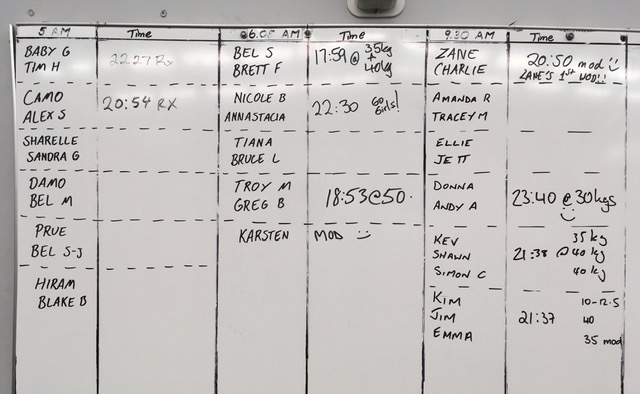 5 AM Time
BABY G
TIM H
22:27 Rx
CAMO
ALEX S
20:54 RX
SHARELLE
SANDRA G
DAMO
BEL M
PRUE
BEL S-J
HIRAM
BLAKE B
6.00 AM Time
BEL S
BRETT F
17:59 @ 35kg
+
40kg
NICOLE B
ANNASTACIA
22:30 GO
Girls!
TIANA
BRUCE L
TROY M
GREG B
18:53@50.
KARSTEN MOD
9.30 AM Time
ZANE
CHARLIE
20:50 mod
ZANE'S 1ST WOD!!
AMANDA R
TRACEY M
ELLIE
JETT
DONNA
ANDY A
23:40 @ 30kgs
KEV 35 kg
SHAWN 21:38 @ 40 kg
SIMON C 40 kg
KIM 10-12.5
JIM 21:37 40
EMMA 35 mod